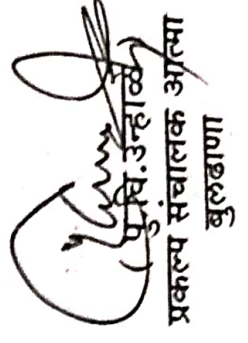 पु.वि.उन्हाळे
प्रकल्प संचालक आत्मा
बुलढाणा